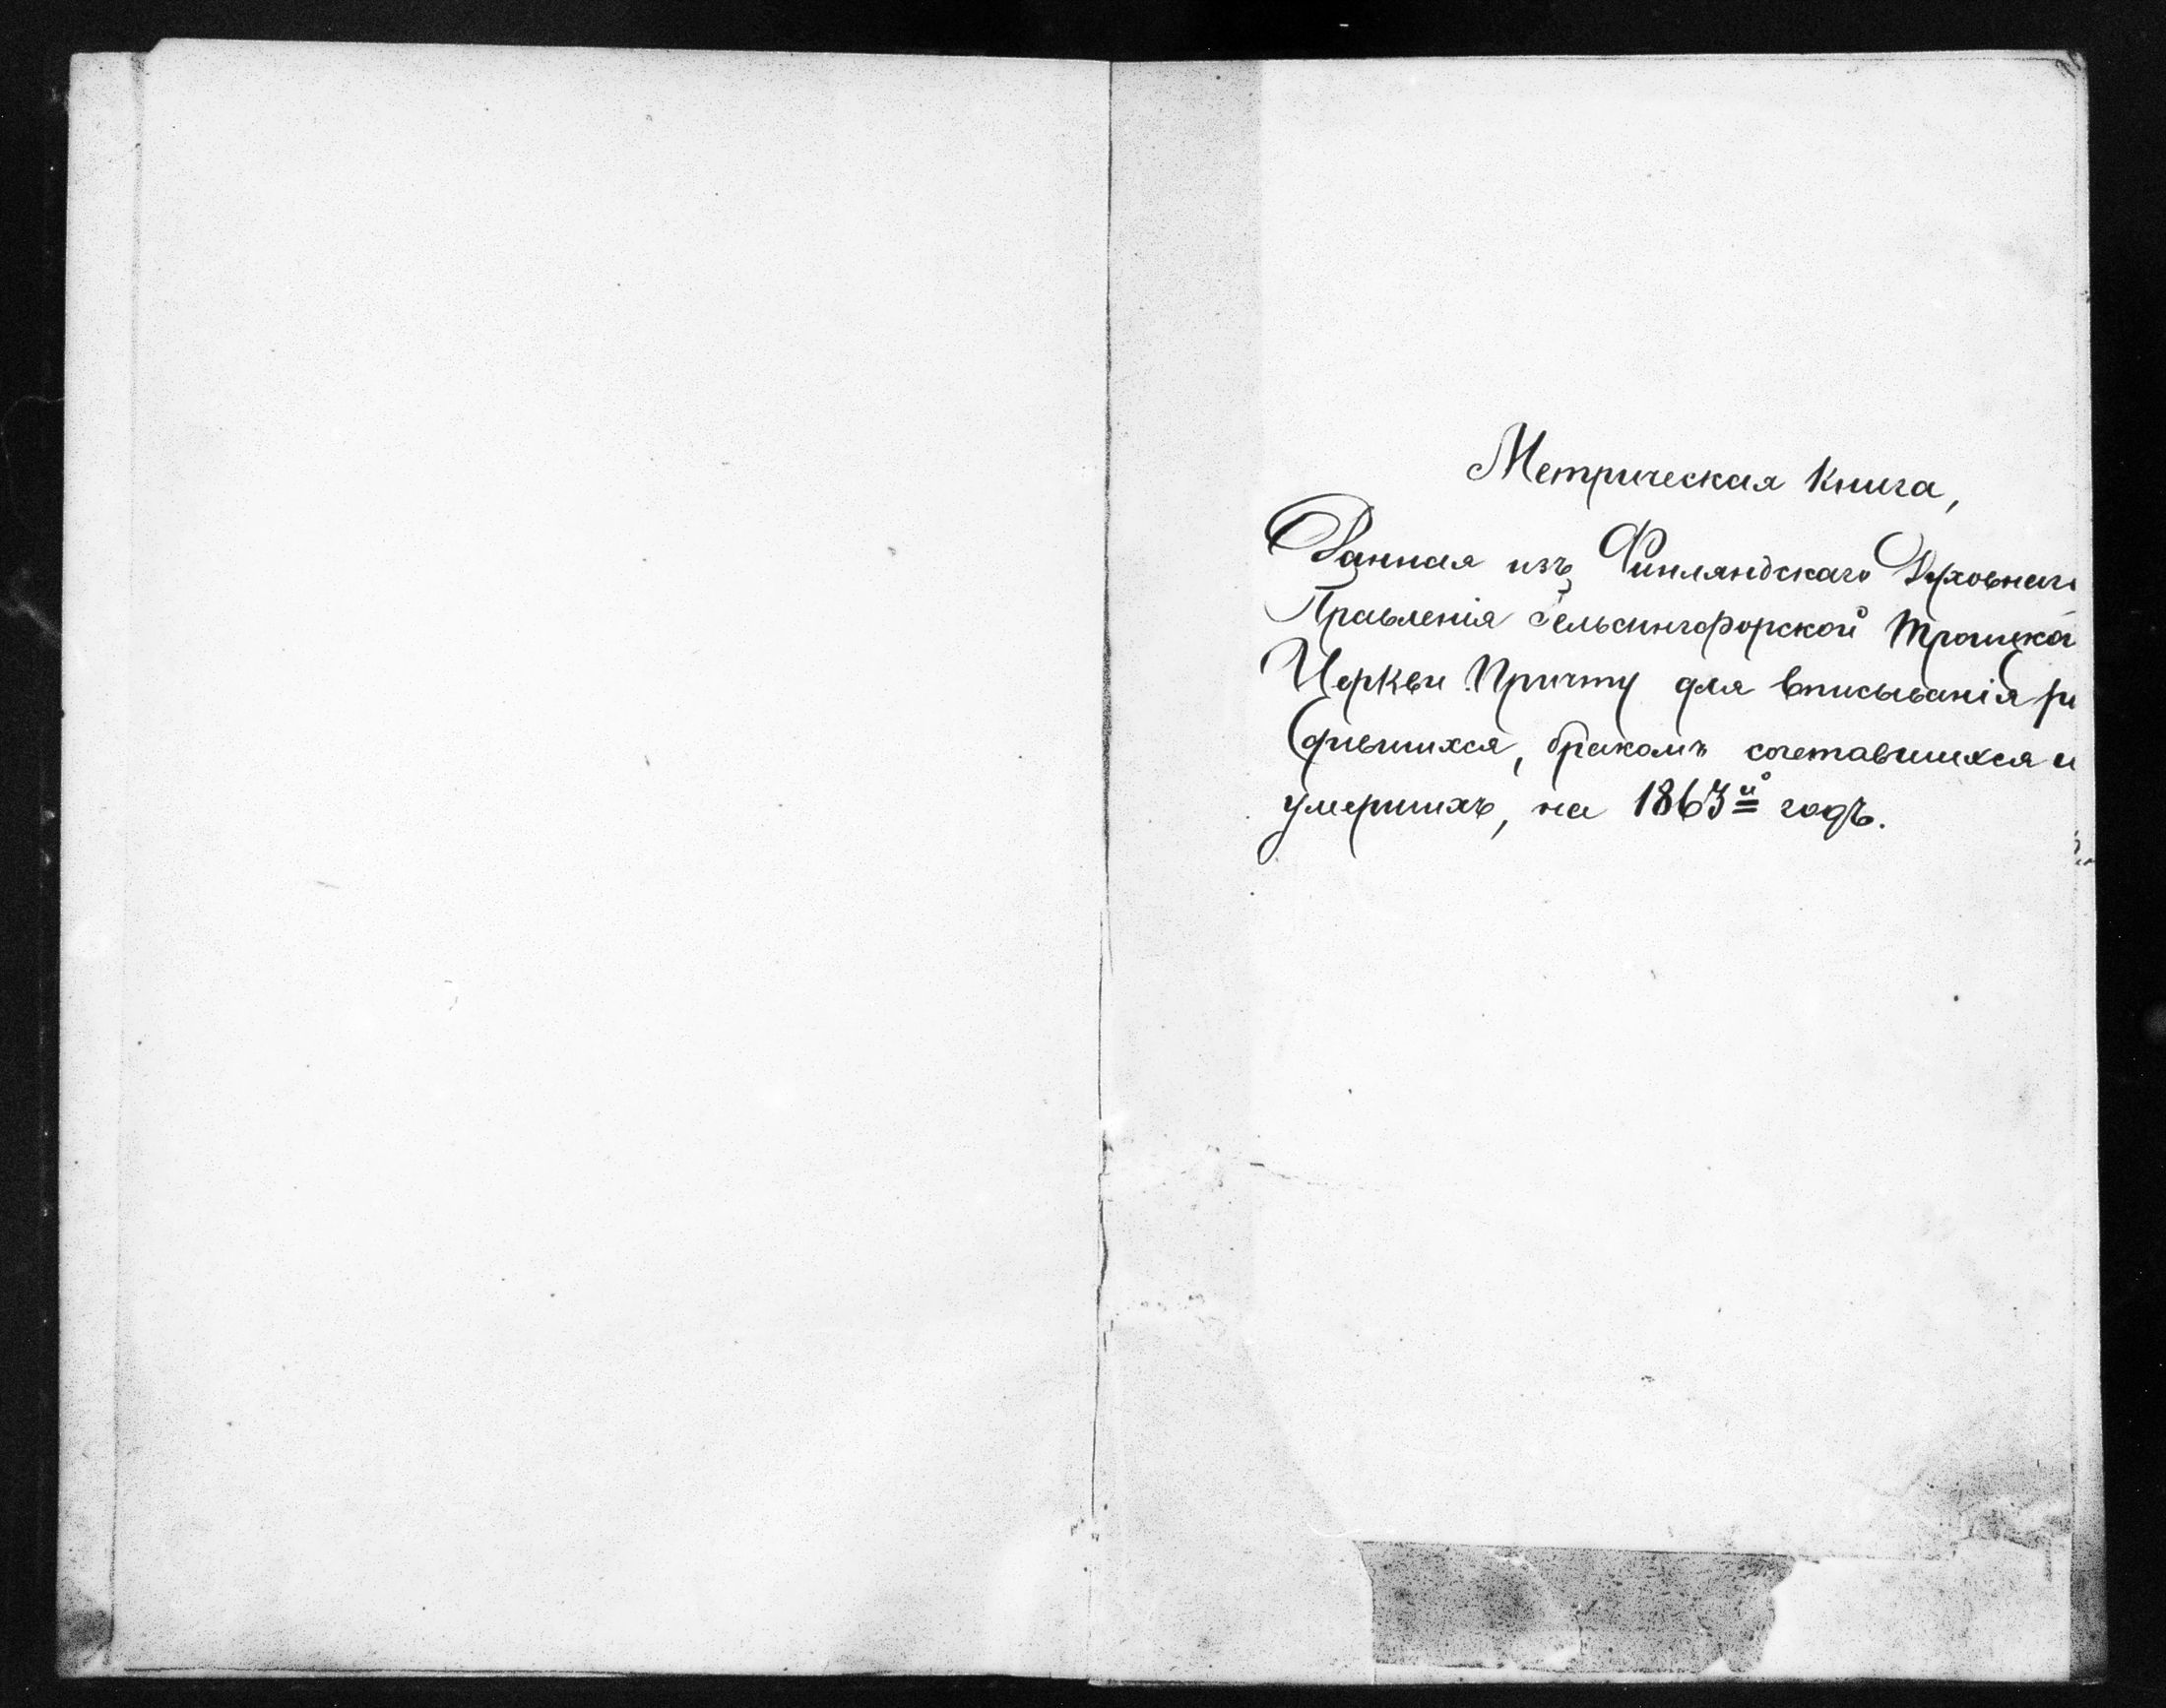 Метрическая Книга,
Данная изъ Финляндскаго Духовнаго
Правленія Гельсингфорской Троицкой
Церкви Причту для вписыванія ро
дившихся, бракомъ сочетавшихся и
умершихъ, на 1863й годъ.